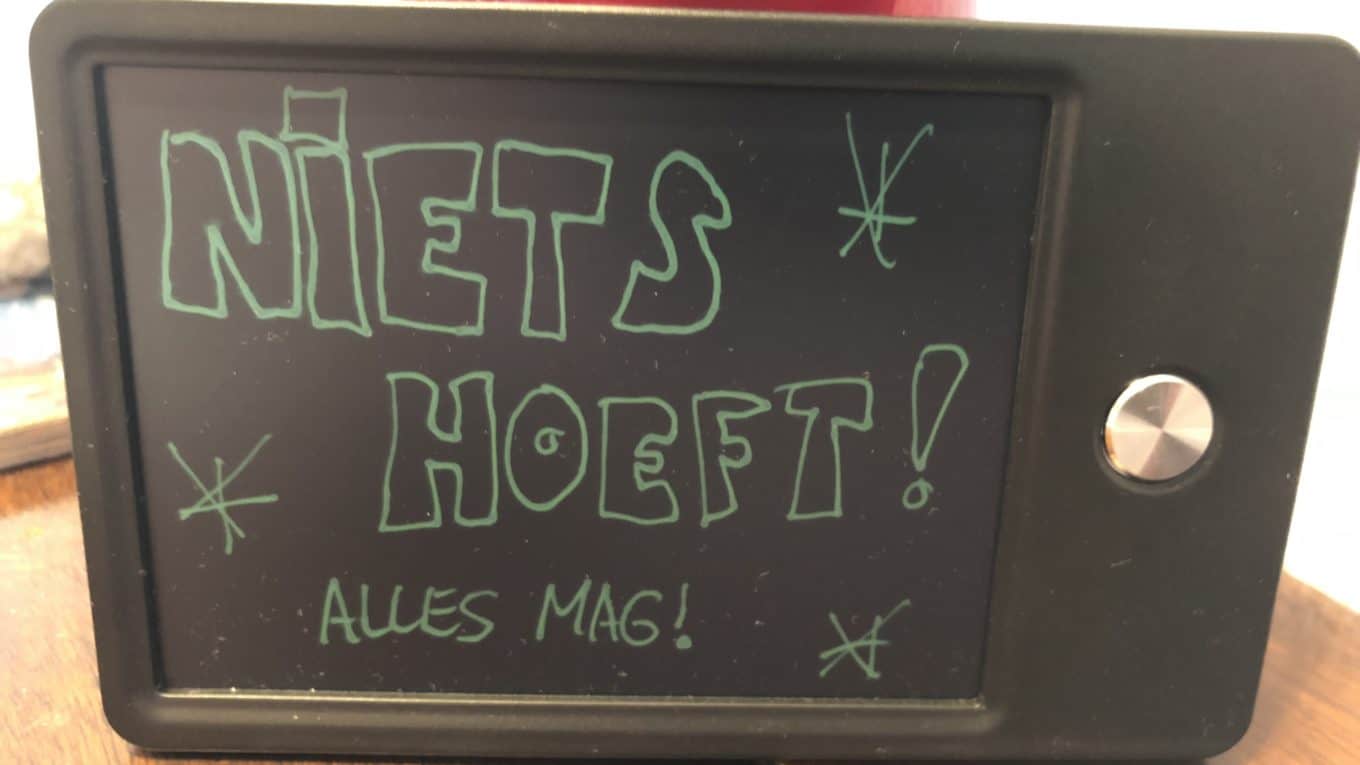 NIETS
HOEFT!
ALLES MAG!